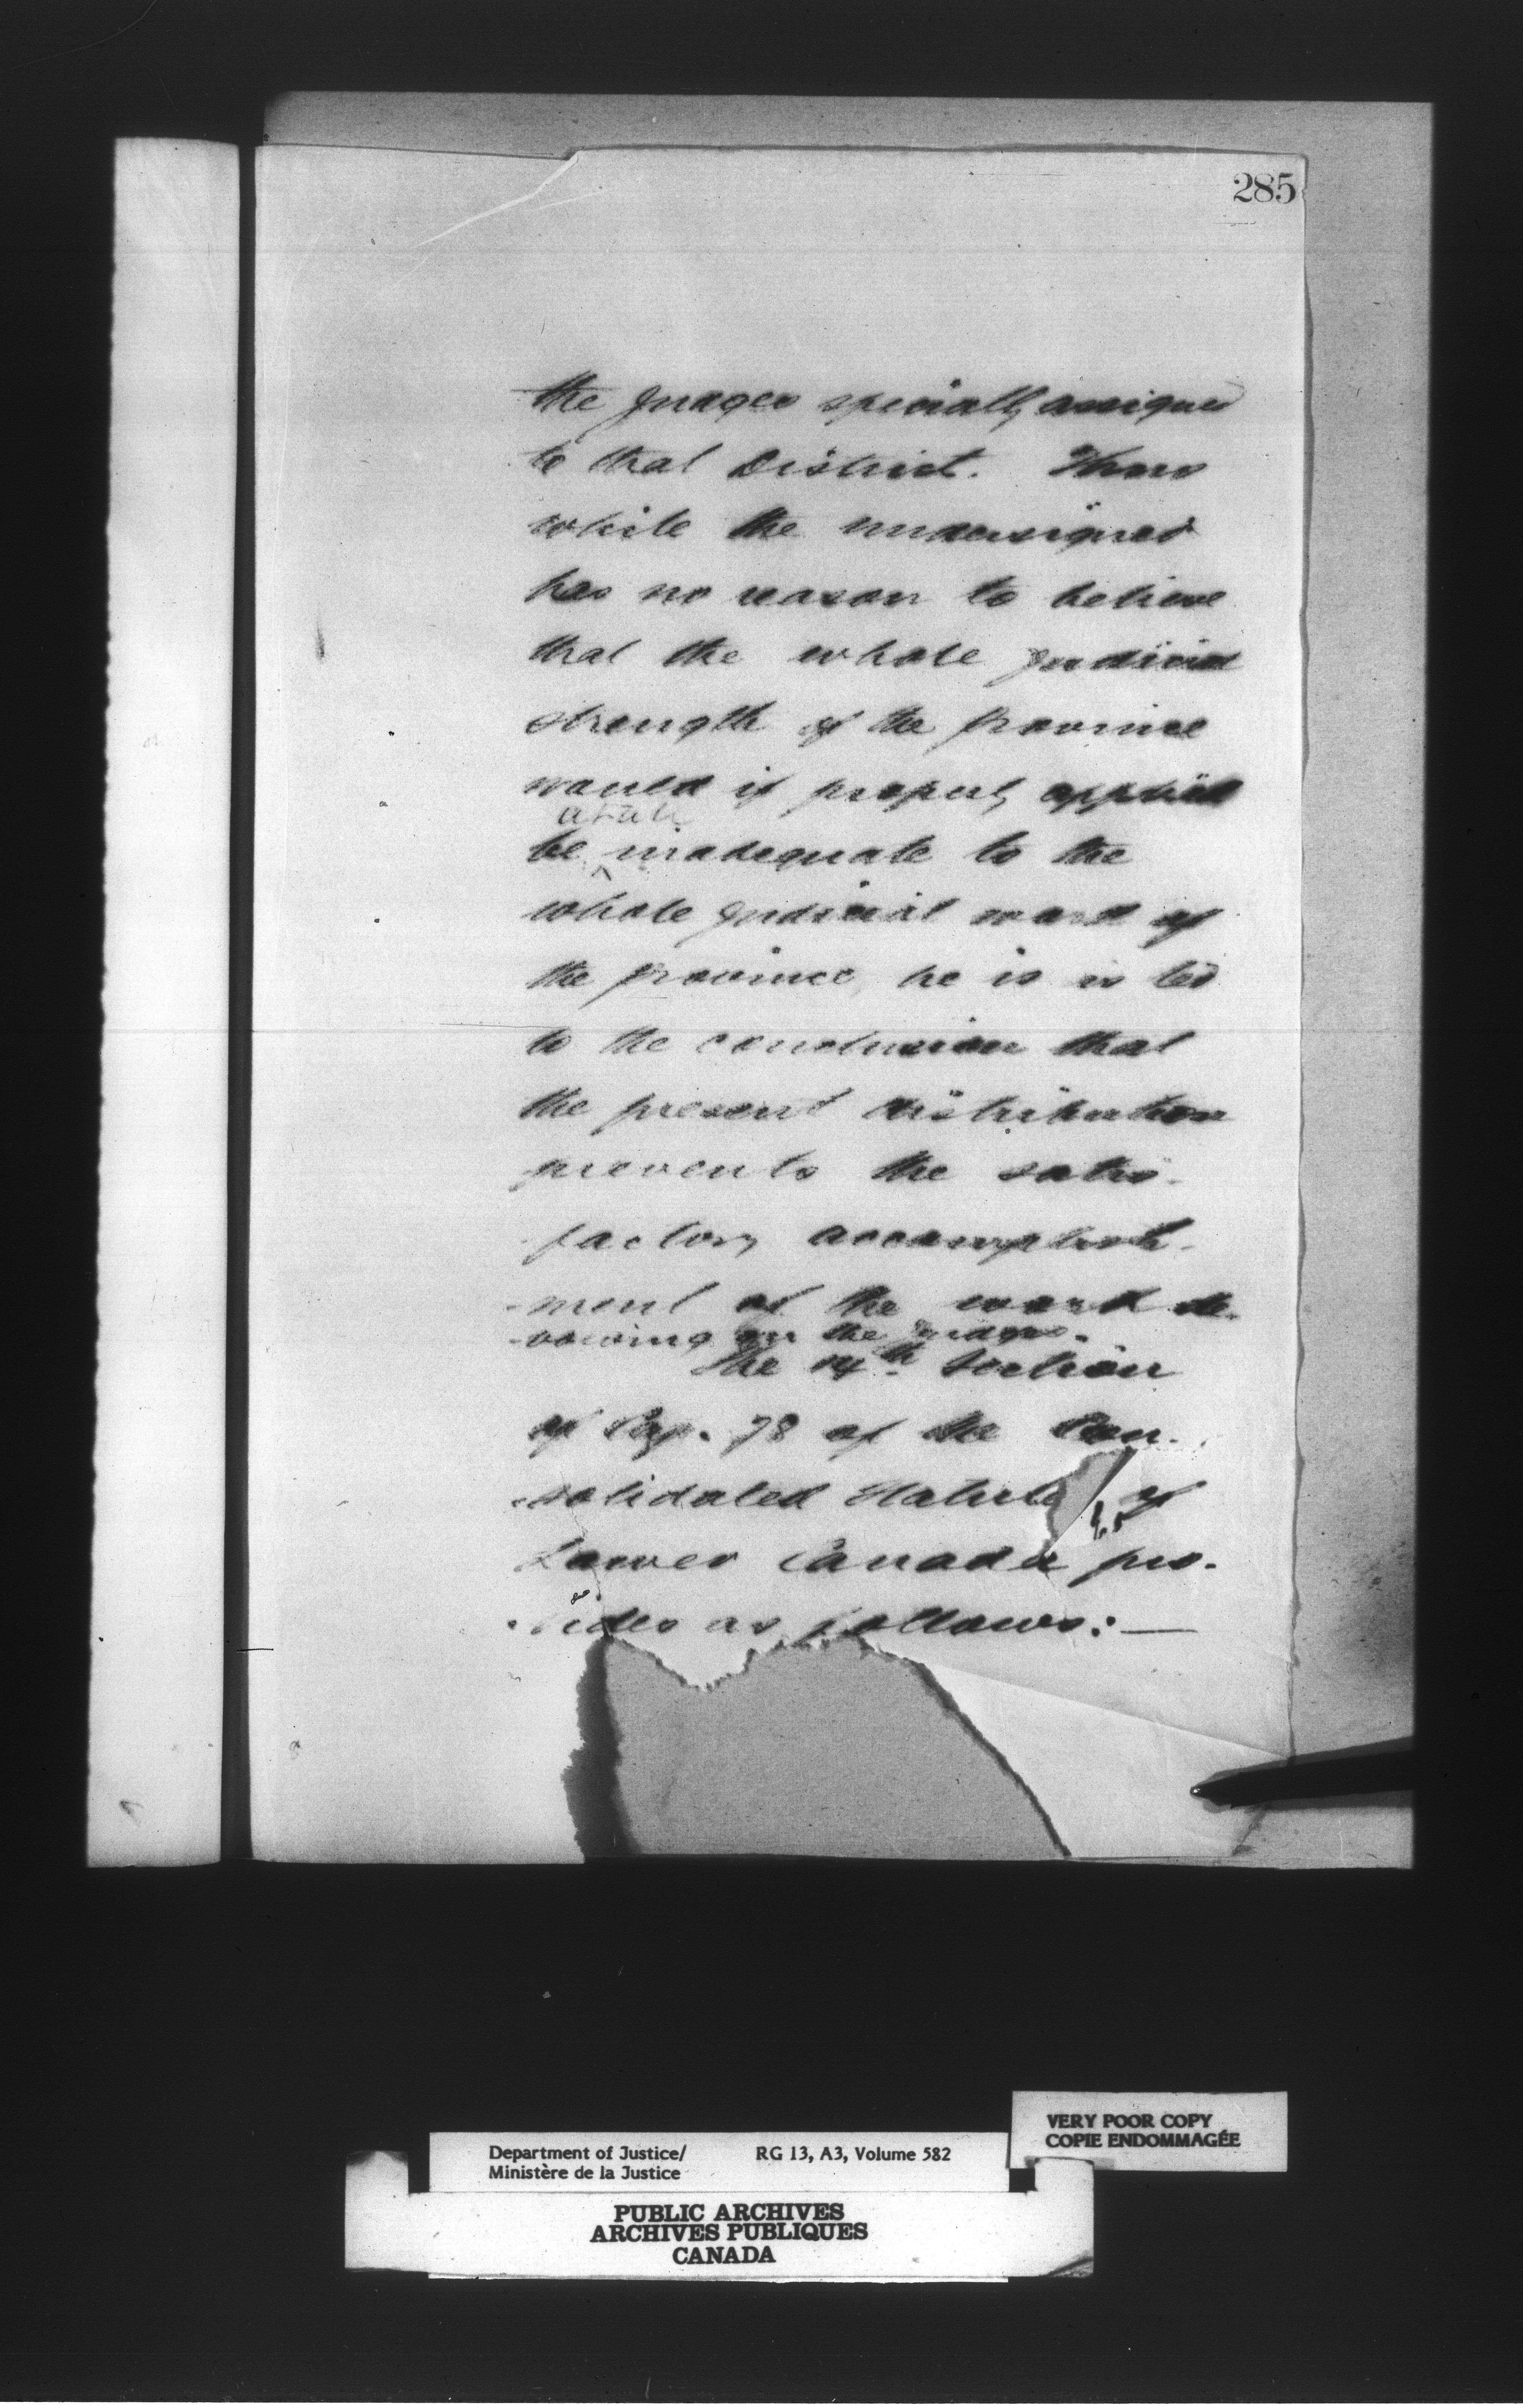 285
the Judges specially assigned
to that District. Thus
while the undersigned
has no reason to believe
that the whole judicial
strength of the Province
would if properly applied
at all
be inadequate to the
whole judicial work of
the Province, he is led
to the conclusion that
the present distribution
prevents the satis-
factory accomplish-
-ment of the work de-
-volving on the Judges.
The th Section
of Cap. 78 of the Con-
-solidated Statutes of
Lower Canada pro-
-vides as follows:—
VERY POOR COPY
COPIE ENDOMMAGÉE
Department of Justice/ RG 13, A3, Volume 582
Ministère de la Justice
PUBLIC ARCHIVES
ARCHIVES PUBLIQUES
CANADA